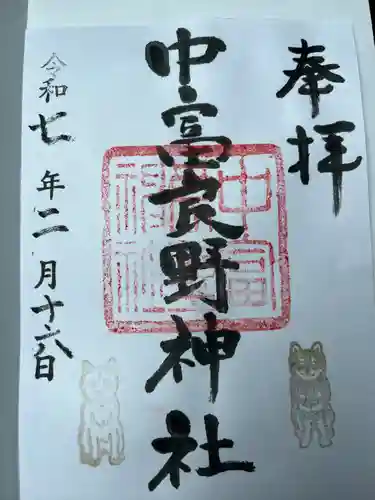 奉拝
中富良野神社
令和七年二月十六日